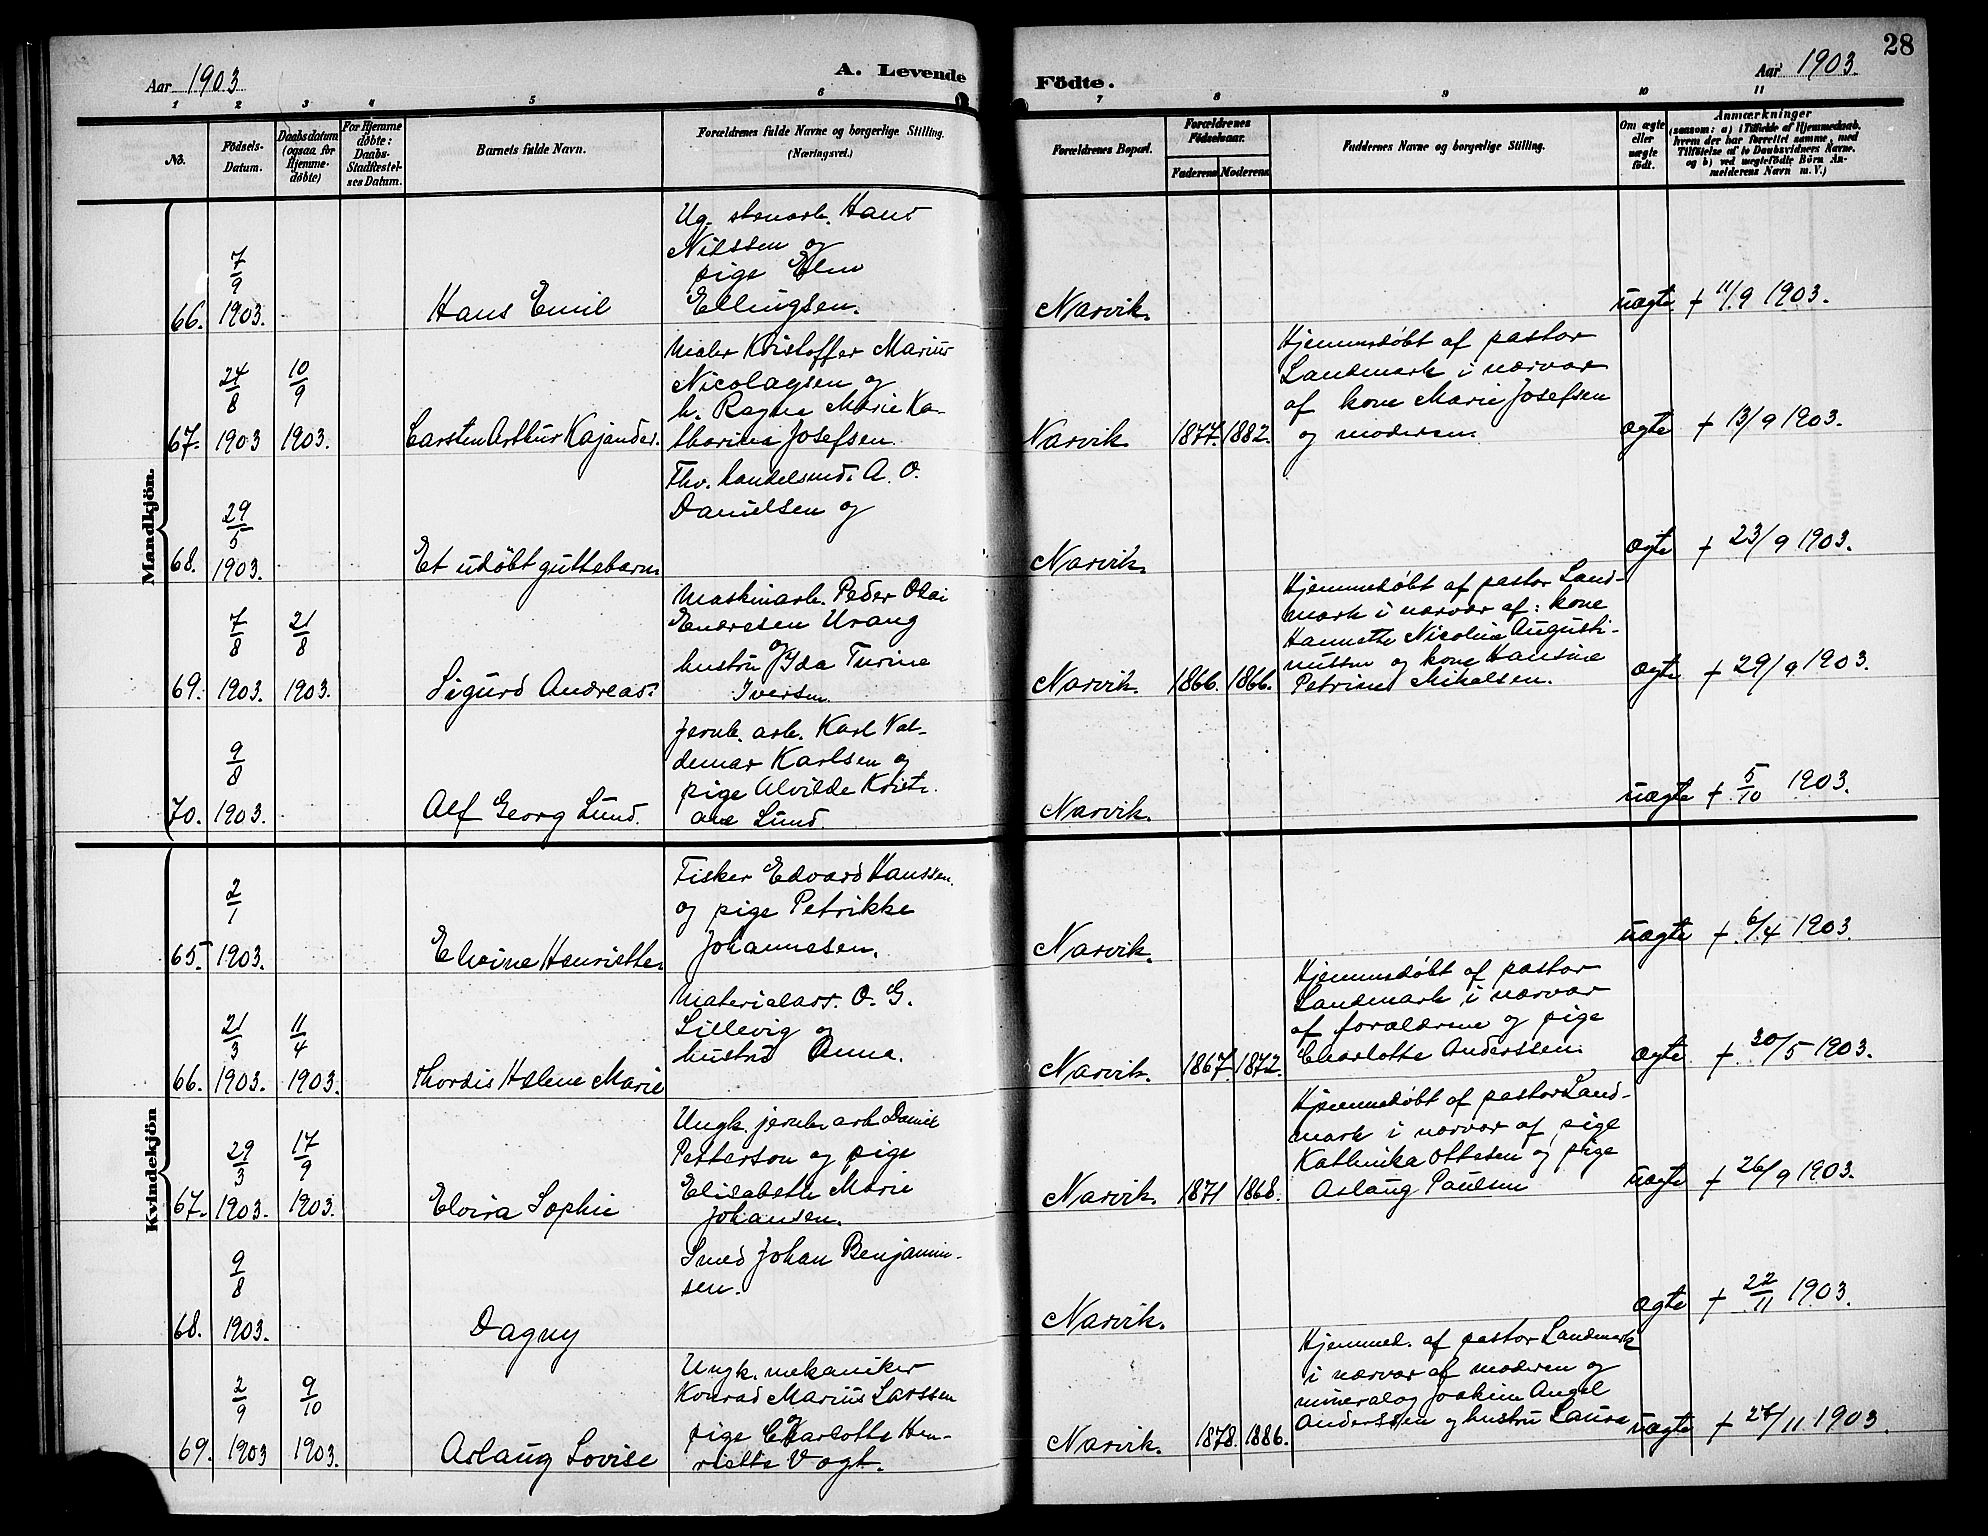 28
Aar 1903
A. Levende Födte.
Aar 1903.
1 2 3 4 5 6 7 8 9 10 11
No.
Födsels-
Datum.
Daabsdatum
(ogsaa for
Hjemme-
døbte)
For Hjemme
døbte:
Daabs-
Stadfæstel-
ses Datum.
Barnets fulde Navn.
Forældrenes fulde Navne og borgerlige Stilling.
(Næringsvei.)
Forældrenes Bopæl.
Forældrenes
Födselsaar.
Faderens Moderens
Faddernes Navne og borgerlige Stilling.
Om ægte
eller
uægte
født.
Anmærkninger
(saasom: a) i Tilfælde af Hjemmedaab,
hvem der har forrettet samme, med
Tilföielse af to Daabsvidners Navne.
og b) ved uægtefödte Börn An-
melderens Navn m. V.)
Mandkjön.
66.
7/9
1903.
Hans Emil
Ug. stenarb. Hans
Nilssen og
pige Elen
Ellingsen.
Narvik.
uægte
+ 11/9 1903.
67.
24/8
1903
10/9
1903.
Carsten Arthur Kajander.
Maler Kristoffer Marius
Nicolaysen og
h. Ragna Marie Ka-
tharina Josefsen.
Narvik
1877. 1882.
Hjemmedøbt af pastor
Landmark i nærvær
af kone Marie Josefsen
og moderen.
ægte
+ 13/9 1903.
68.
29/5
1903.
Et udöbt guttebarn.
Fhv. handelsmd. A. O.
Danielsen og
Narvik.
ægte
+ 23/9 1903.
69.
7/8
1903.
21/8
1903.
Sigurd Andreas.
Maskinarb. Peder Olai
Endresen Urang
og
hustru Ida Turine
Iversen.
Narvik.
1866. 1866.
Hjemmedöbt af pastor Land-
mark i nærvær af: kone
Hannette Nicoline Augusti-
nussen og kone Hansine
Petrine Mikalsen.
ægte
+ 29/9 1903.
70.
9/8
1903.
Alf Georg Lund.
Jernb. arb. Karl Val-
demar Karlsen og
pige Alvilde Kristi-
ane Lund.
Narvik.
uægte
+ 5/10 1903.
Kvindekjön
65.
2/1
1903.
Elvine Henriette.
Fisker Edvard Hanssen.
og pige Petrikke
Johannesen.
Narvik.
uægte
+ 6/4 1903.
66.
21/3
1903.
11/4
1903.
Thordis Helene Marie
Materialarr. O. G.
Lillevig og
hustru Anna.
Narvik.
1867. 1872.
Hjemmedöbt af pastor
Landmark i nærvær
af forældrene og pige
Charlotte Anderssen.
ægte
+ 30/5 1903.
67.
29/3
1903.
17/9
1903.
Elvira Sophie
Ungk. jernb. arb. Daniel
Petterson og pige
Elisabeth Marie
Johansen.
Narvik.
1871 1868.
Hjemmedöbt af pastor Land-
mark i nærvær af pige
Kathinka Ottesen og pige
Aslaug Paulsen
uægte
+ 26/9 1903.
68.
9/8
1903.
Dagny
Smed Johan Benjamin-
sen.
Narvik.
ægte
+ 22/11 1903.
69.
2/9
1903
9/10
1903.
Aslaug Lovise
Ungk. mekaniker
Konrad Marius Larssen
og
pige Charlotte Hen-
riette Vogt.
Narvik.
1878. 1886.
Hjemmed. af pastor Landmark
i nærvær af moderen og
mineralog Joakim Angel
Anderssen og hustru Laura
uægte
+ 27/11 1903.